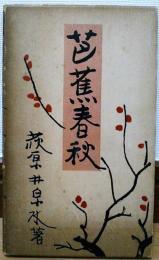 芭蕉春秋
荻原井泉水著